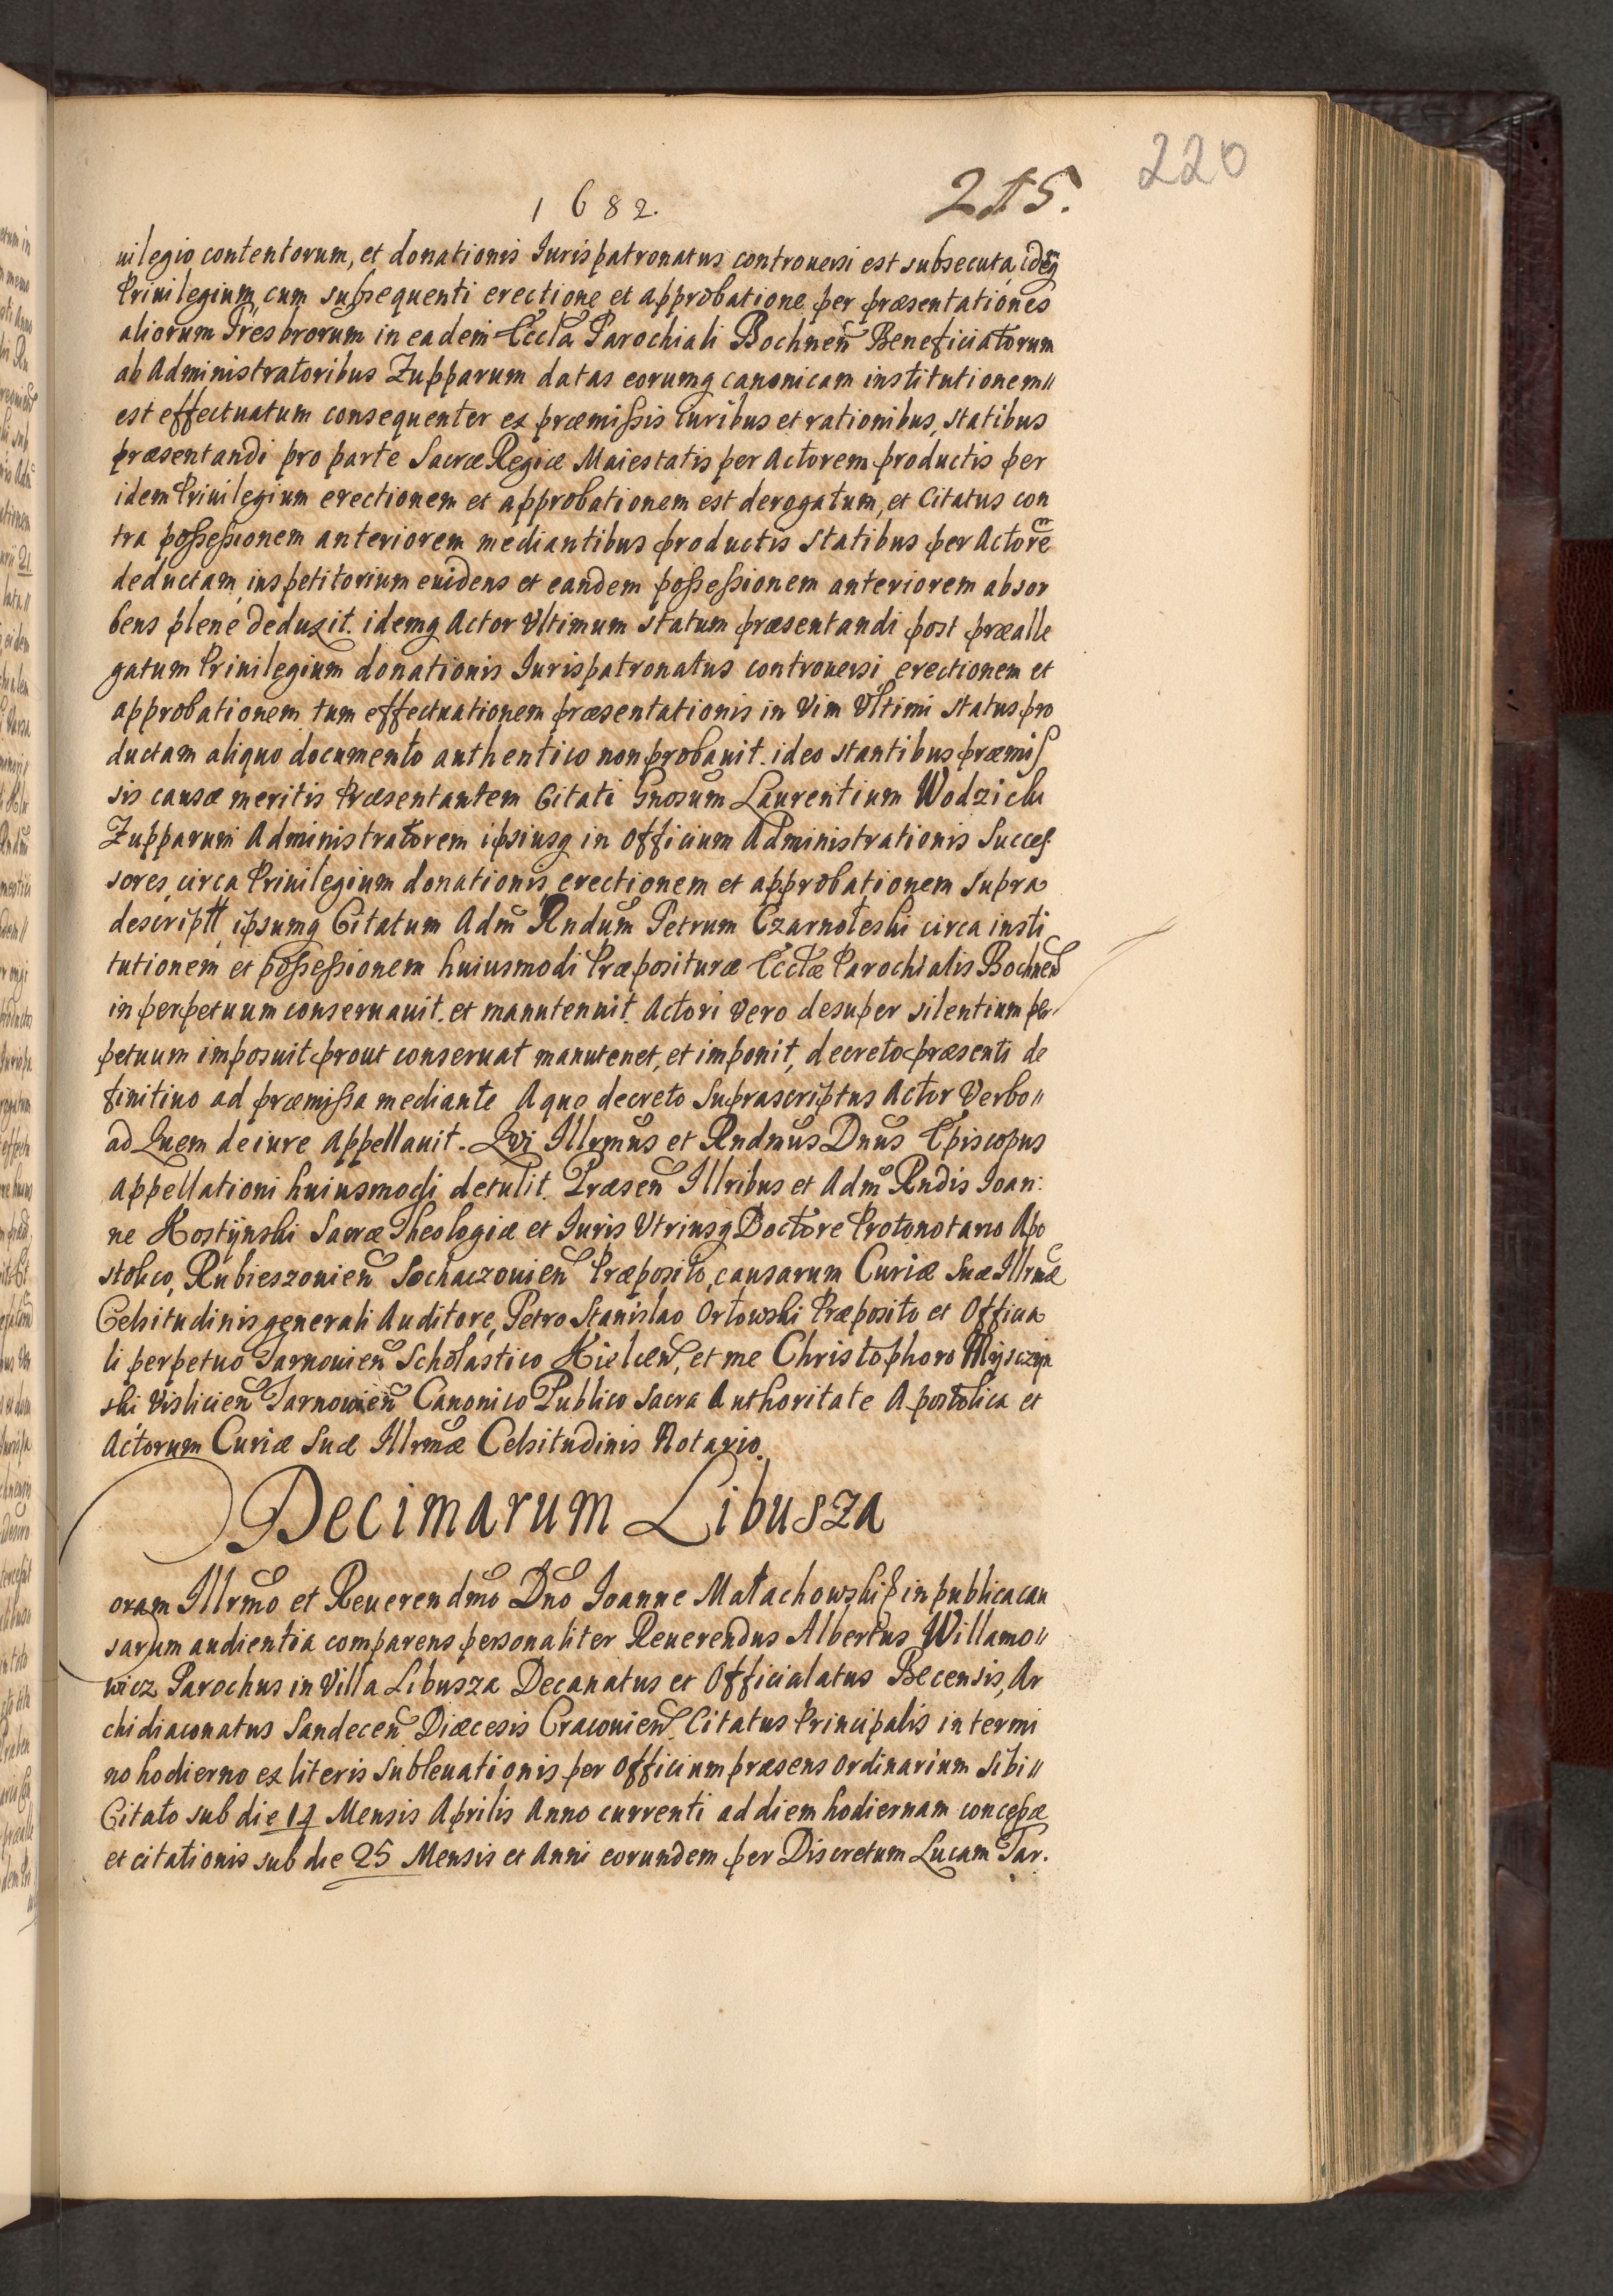 220
1682. 215.
uilegio contentorum, et donationis Jurispatronatus controuersi est subsecuta, idēq
Priuilegium cum subsequenti erectione et approbatione per præsentationes
aliorum Præsbrorum in eadem Eccla Parochiali Bochnen̄ Beneficiatorum
ab Administratoribus Zupparum datas eorumq canonicam institutionem//
est effectuatum consequenter ex præmissis iuribus et rationibus, statibus
præsentandi pro parte Sacræ Regiæ Maiestatis per Actorem productis per
idem Priuilegium erectionem et approbationem est derogatum, et Citatus con
tra possessionem anteriorem mediantibus productis statibus per Actorē
deductam, ius petitorium euidens et eandem possessionem anteriorem absor
bens plenè deduxit. idemq Actor Vltimum statum præsentandi post præalle
gatum Priuilegium donationis Jurispatronatus controuersi erectionem et
approbationem tum effectuationem præsentationis in vim Vltimi status pro
ductam aliquo documento authentico non probauit. ideo stantibus præmis
sis causæ meritis Præsentantem Citati Gnosum Laurentium Wodzicki
Zupparum Administratorem ipsiusq in officium Administrationis Succes
sores, circa Priuilegium donationis, erectionem et approbationem supra
descriptt, ipsumq Citatum Adm̄ Rndum Petrum Czarnoleski circa insti
tutionem et possessionem huiusmodi Præposituræ Ecclæ Parochialis Bochnen̄
in perpetuum conseruauit. et manutenuit. Actori vero desuper silentium per
petuum imposuit prout conseruat manutenet, et imponit, decreto præsenti de
finitiuo ad præmissa mediante A quo decreto Suprascriptus Actor Verbo//
ad Quem de iure Appellauit. Qui Illrmus et Rndmus Dnus Episcopus
Appellationi huiusmodi detulit. Præsen̄ Illribus et Adm̄ Rndis Joan:
ne Kostynski Sacræ Theologiæ et Juris Vtriusq Doctore Protonotario Apo
stolico, Rubieszouien̄ Sochaczouien̄ Præposito, causarum Curiæ Suæ Illrmæ
Celsitudinis generali Auditore, Petro Stanislao Orłowski Præposito et Officia
li perpetuo Tarnouien̄ Scholastico Kielcen̄, et me Christophoro Mysczyn
ski Vislicien̄ Tarnowien̄ Canonico Publico Sacra Authoritate Apostolica et
Actorum Curiæ Suæ Illrmæ Celsitudinis Notario.
Decimarum Libusza
Coram Illrmo et Reuerendmo Dno Joanne Małachowski in publica cau
sarum audientia comparens personaliter Reuerendus Albertus Willamo//
wicz Parochus in Villa Libusza Decanatus et Officialatus Becensis, Ar
chidiaconatus Sandecen̄ Diæcesis Cracouien̄ Citatus Principalis in termi
no hodierno ex literis subleuationis per officium præsens ordinarium sibi//
Citato sub die 14 Mensis Aprilis Anno currenti ad diem hodiernam concessæ
et citationis sub die 25 Mensis et Anni eorundem per Discretum Lucam Tar.